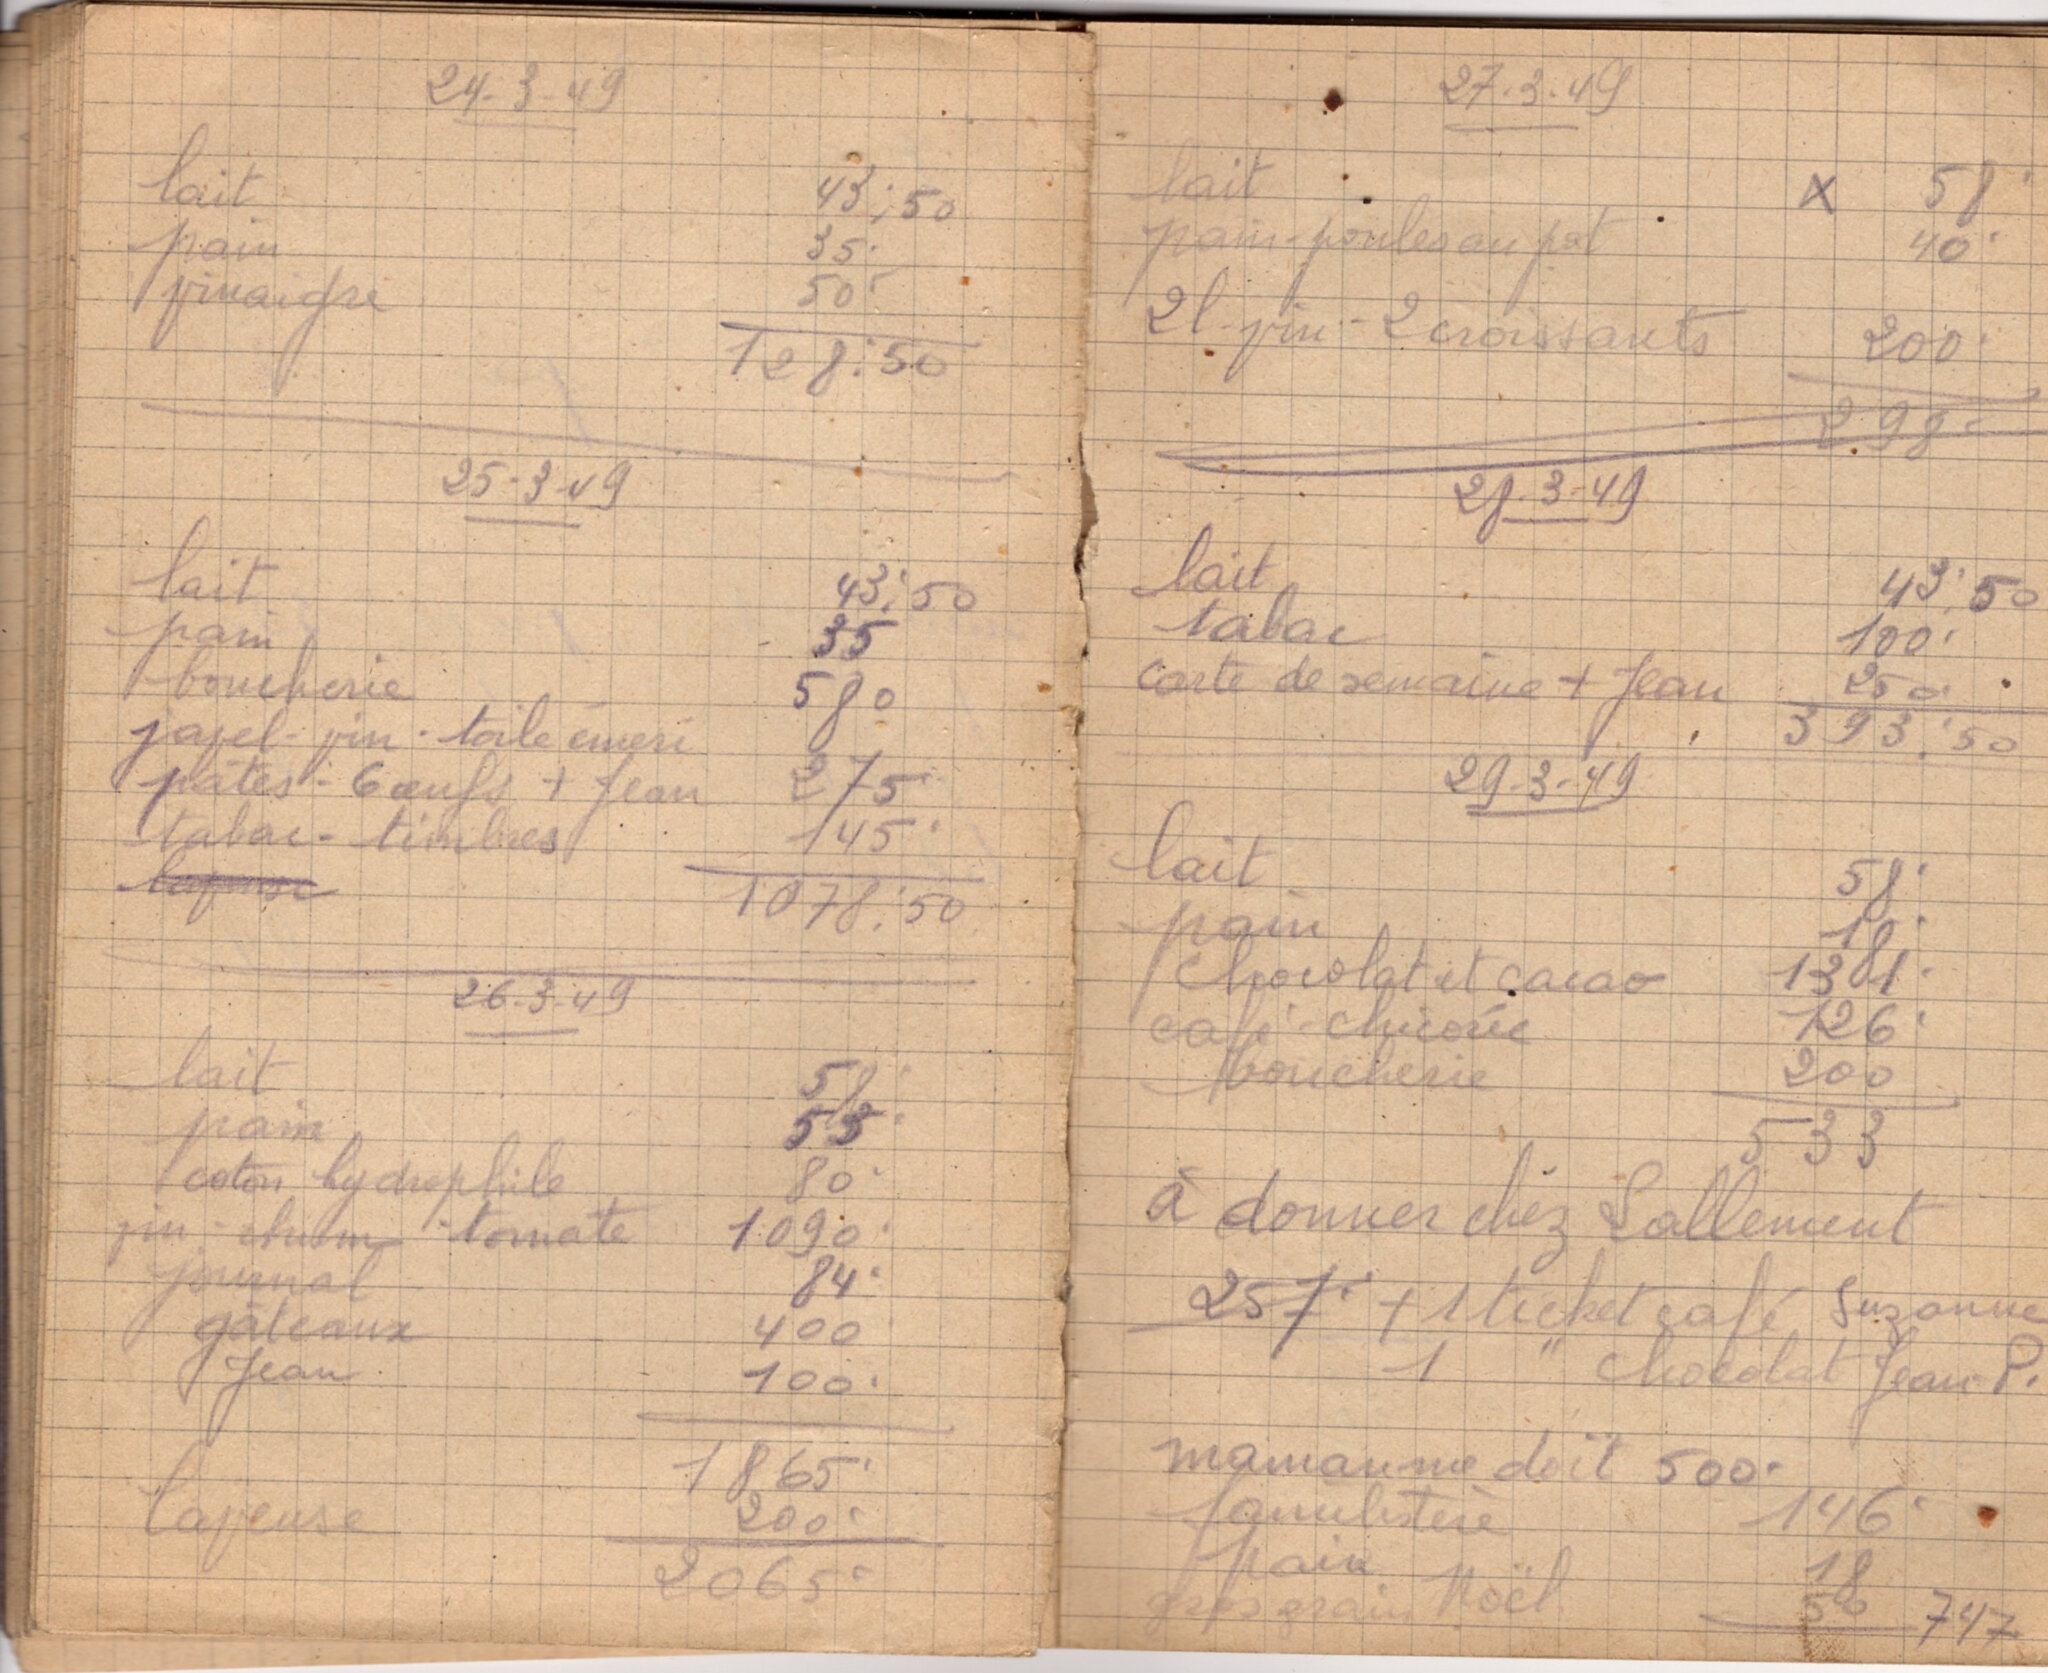 24-3-49
lait 43,50
pain 35.
vinaigre 50
128,50
25-3-49
lait 43,50
pain 35
boucherie 580
javel - vin - toile émeri
pâtes - 6 œufs + Jean 275
tabac - timbres 145.
1078,50
26-3-49
lait 58.
pain 53.
coton hydrophile 80.
vin - rhum - tomate 1090.
journal 84.
gâteaux 400
Jean 100.
1865.
laveuse 200.
2065.
27-3-49
lait x 58.
pain - poules au pot 40.
2l vin - 2 croissants 200.
298.
28-3-49
lait 43,50
tabac 100.
carte de semaine + Jean 250.
393,50
29-3-49
lait 58.
pain 18.
chocolat et cacao 131.
café - chicorée 126.
boucherie 200
533
à donner chez Lallement
257. + 1 ticket café Suzanne
1 " chocolat Jean P.
maman me doit 500.
familistère 146.
pain 18
gros grain Noël 56 747